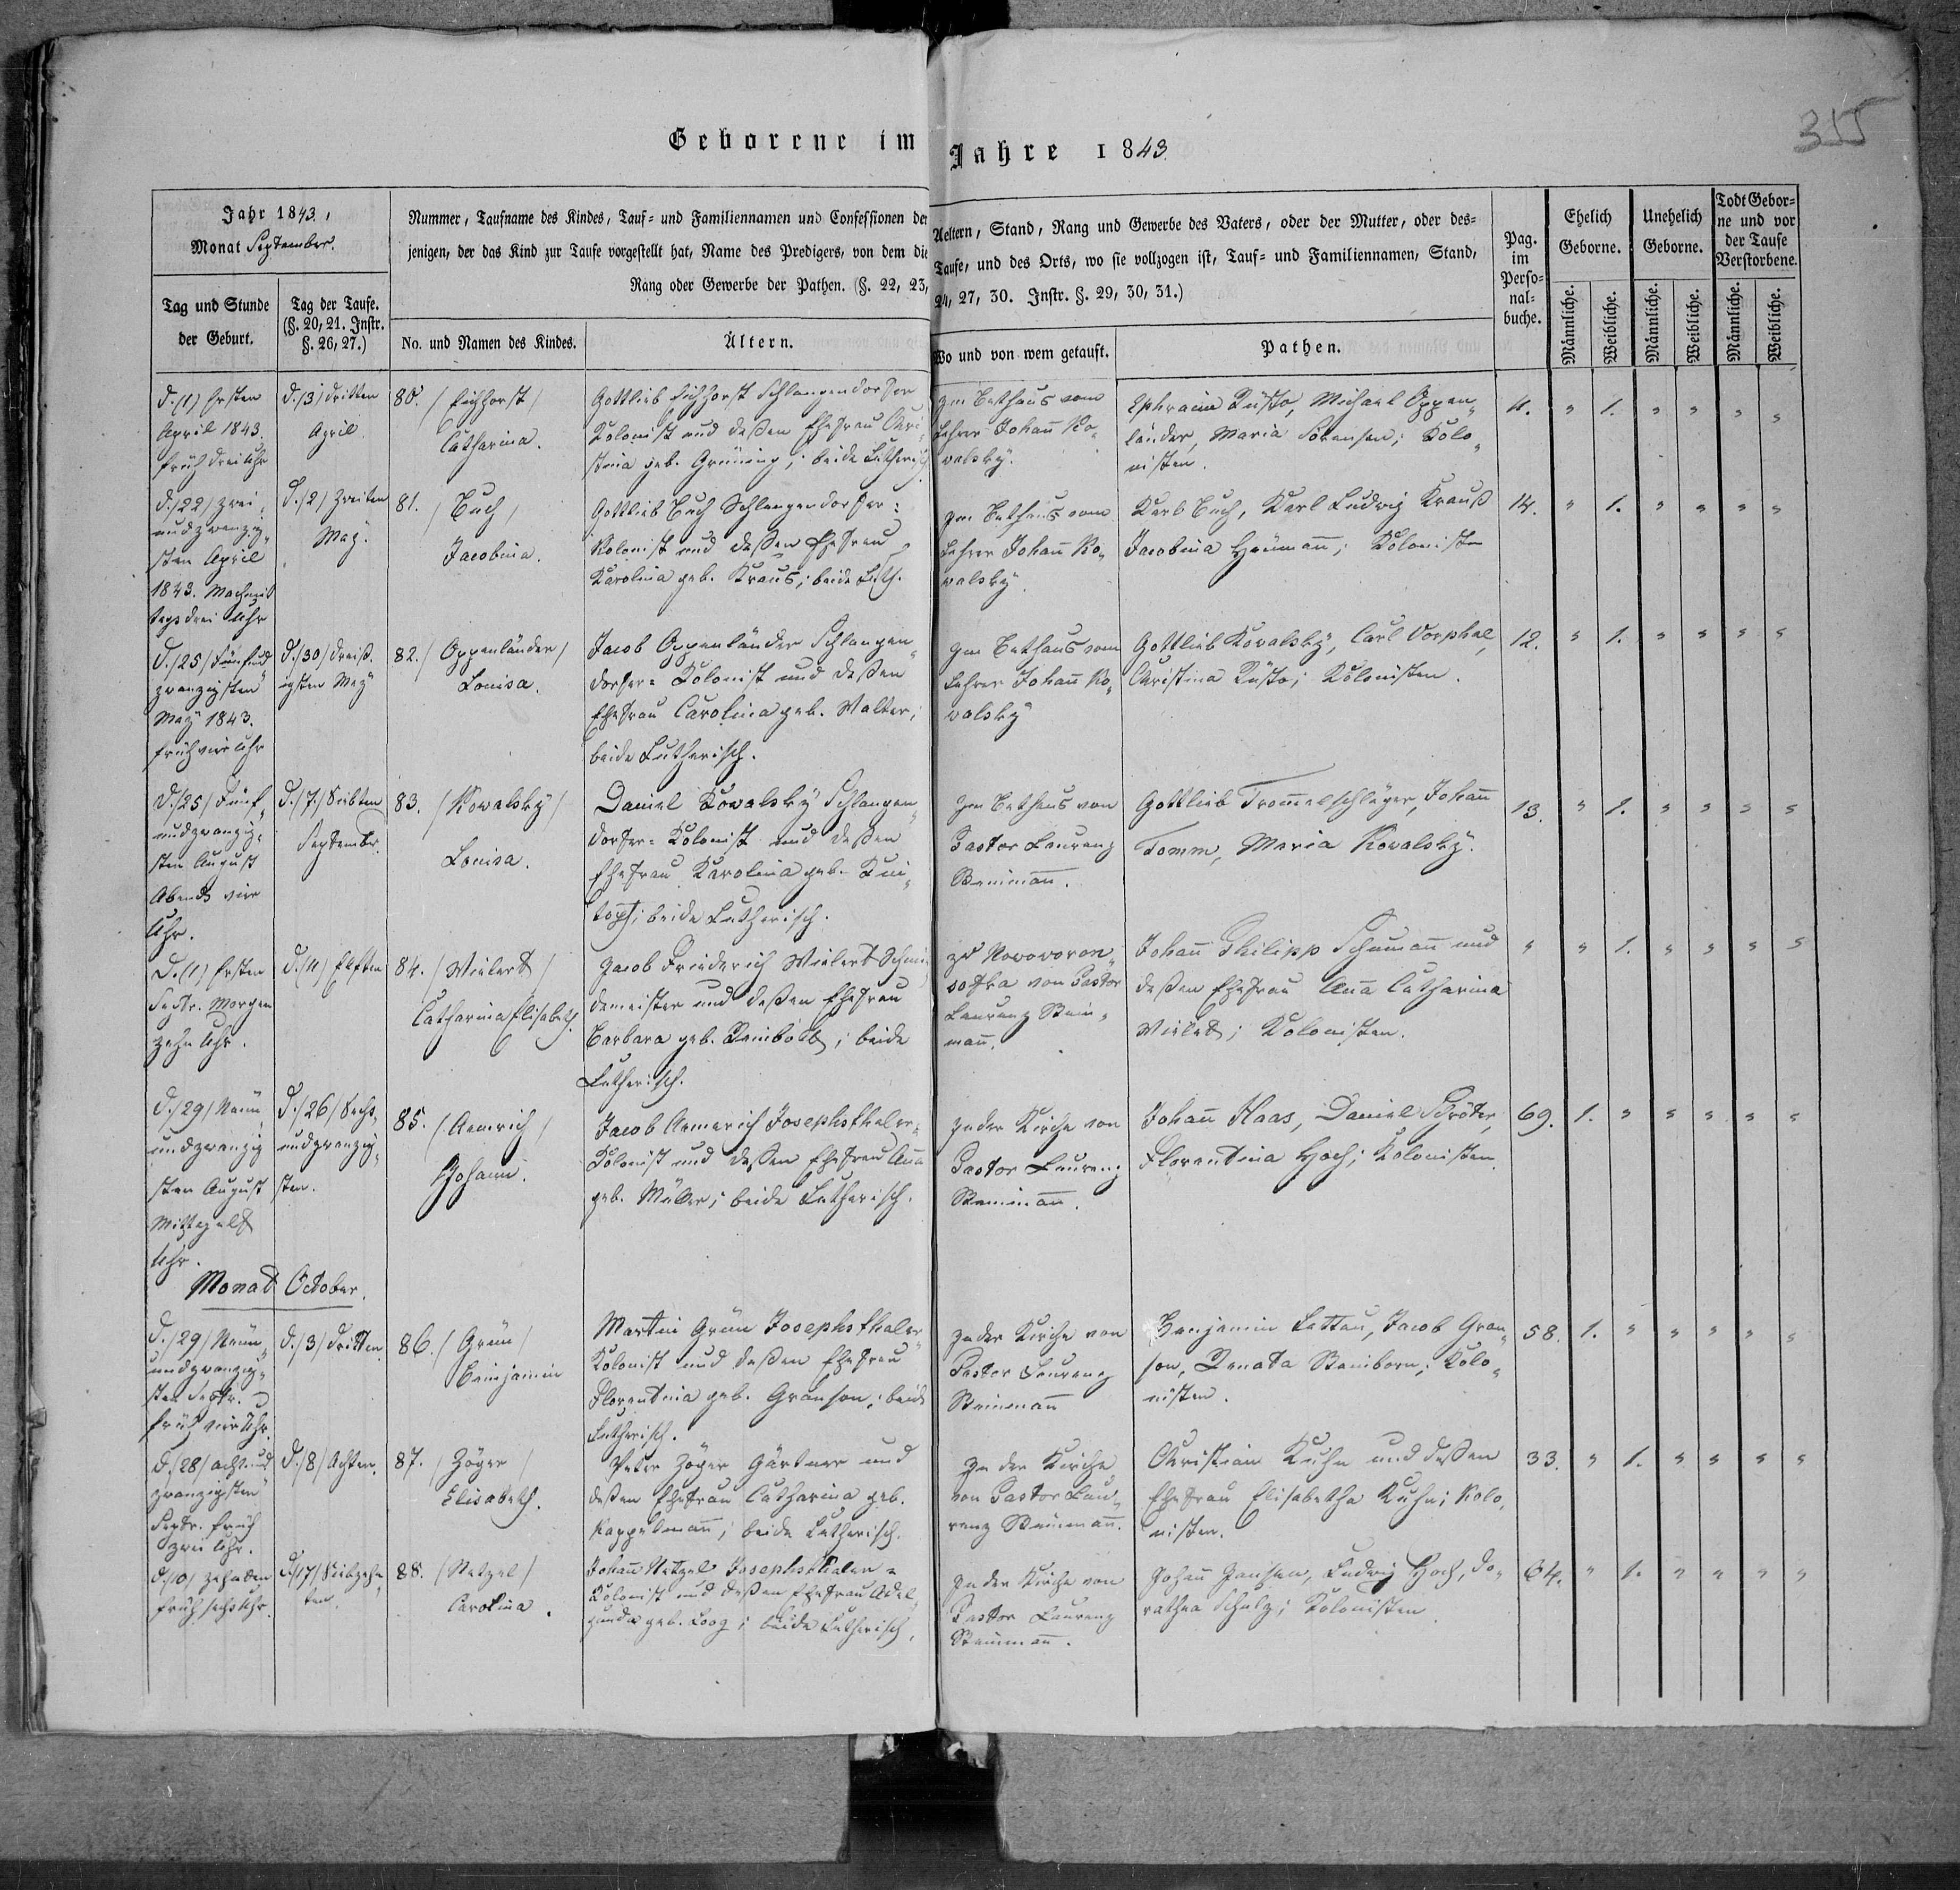 Geborene im Jahre 1843.
355
Jahr 1843,
Monat September.
Tag und Stunde
der Geburt.
Tag der Taufe.
(§. 20, 21. Instr.
§. 26, 27.)
Nummer, Taufname des Kindes, Tauf- und Familiennamen und Confessionen der Aeltern, Stand, Rang und Gewerbe des Vaters, oder der Mutter, oder des-
jenigen, der das Kind zur Taufe vorgestellt hat, Name des Predigers, von dem die Taufe, und des Orts, wo sie vollzogen ist, Tauf- und Familiennamen, Stand,
Rang oder Gewerbe der Pathen. (§. 22, 23, 24, 27, 30. Instr. §. 29, 30, 31.)
No. und Namen des Kindes.
Ältern.
Wo und von wem getauft.
Pathen.
Pag.
im
Perso-
nal-
buche.
Ehelich
Geborne.
Unehelich
Geborne.
Todt Gebor-
ne und vor
der Taufe
Verstorbene.
Männliche.
Weibliche.
Männliche.
Weibliche.
Männliche.
Weibliche.
d. (1) Ersten
April 1843.
früh drei Uhr
d. (3) dritten
April
80. (Eichhorst)
Catharina.
Gottlieb Eichhorst Schlangendorfer
Kolonist und deßen Ehefrau Chri-
stina geb. Grüning; beide Lutherisch
Im Bethaus vom
Lehrer Johann Ko-
walsky.
Ephraim Rüsto, Michael Oppen-
länder, Maria Sörensen; Kolo-
nisten.
4. " 1. " " " "
d. (22) zwei-
undzwanzig-
sten April
1843. Nachmit
tags drei Uhr
d. (2) zweiten
May.
81. (Buch)
Jacobina.
Gottlieb Buch Schlangendorfer-
Kolonist und deßen Ehefrau
Karolina geb. Kraus; beide Luth.
Im Bethaus vom
Lehrer Johann Ko-
walsky.
Karl Buch, Karl Ludwig Krauß
Jacobina Heumann; Kolonisten
14. " 1. " " " "
d. (25) Fünfund
zwanzigsten
May 1843.
früh vier Uhr
d. (30) dreiß-
igsten May
82. (Oppenländer)
Louisa.
Jacob Oppenländer Schlangen-
dorfer-Kolonist und deßen
Ehefrau Carolina geb. Walter;
beide Lutherisch.
Im Bethaus vom
Lehrer Johann Ko-
walsky
Gottlieb Kowalsky, Carl Vorphal,
Christina Rüsto; Kolonisten.
12. " 1. " " " "
d. (25) Fünf-
undzwanzig-
sten August
Abends vier
Uhr.
d. (7.) Siebten
September.
83. (Kowalsky)
Louisa.
Daniel Kowalsky Schlangen-
dorfer-Kolonist und deßen
Ehefrau Karolina geb.
beide Lutherisch.
Im Bethaus von
Pastor Laurenz
Steinmann.
Gottlieb Trommelschläger, Johann
Tomm, Maria Kowalsky.
13. " 1. " " " "
d. (1) Ersten
Septr. Morgen
zehn Uhr.
d. (11) Elften
84. (Wielert)
Catharina Elisabeth.
Jacob Friederich Wielert Schmi-
demeister und deßen Ehefrau
Barbara geb. Reinbold; beide
Lutherisch.
zu Nowoworon-
zofka von Pastor
Laurenz Stein-
mann.
Johann Philipp Schumann und
deßen Ehefrau Anna Catharina
Wielert; Kolonisten.
" " 1. " " " "
d. (29) Neun-
undzwanzig
sten August
Mittag elf
Uhr.
d. (26) Sechs-
undzwanzig-
sten.
85. (Aemrich)
Johann.
Jacob Aemerich Josephsthaler-
Kolonist und deßen Ehefrau Anna
geb. Müller; beide Lutherisch.
In der Kirche von
Pastor Laurenz
Steinmann.
Johann Haas, Daniel Schröter,
Florentina Hoch; Kolonisten
69. 1. " " " " "
Monat October.
d. (29) Neun-
undzwanzig-
sten Septr.
früh vier Uhr.
d. (3) dritten
86. (Grün)
Beinjamin
Martin Grün Josephsthaler-
Kolonist und deßen Ehefrau
Florentina geb. Granson; beide
Lutherisch.
In der Kirche von
Pastor Laurenz
Steinmann
Benjamin Lattau, Jacob Gran-
son, Renata Steinborn; Kolo-
nisten.
58. 1. " " " " "
d. (28) acht und
zwanzigsten
Septr. früh
zwei Uhr.
d. (8) Achten.
87. (Zöger)
Elisabeth.
Peter Zöger Gärtner und
deßen Ehefrau Catharina geb.
Kappelmann; beide Lutherisch.
In der Kirche
von Pastor Lau-
renz Steinmann.
Christian Kuhn und deßen
Ehefrau Elisabetha Kuhn; Kolo-
nisten.
33. " 1. " " " "
d. (10) zehnden
früh sechs Uhr.
d. (17) Siebzehn-
ten.
88. (Netzel)
Carolina.
Johann Netzel Josephsthaler-
Kolonist und deßen Ehefrau Adel-
gunda geb. Looz; beide Lutherisch,
In der Kirche von
Pastor Laurenz
Steinmann.
Johann Jansen, Ludwig Hoch, Do-
rathea Schulz; Kolonisten
64. " 1. " " " "